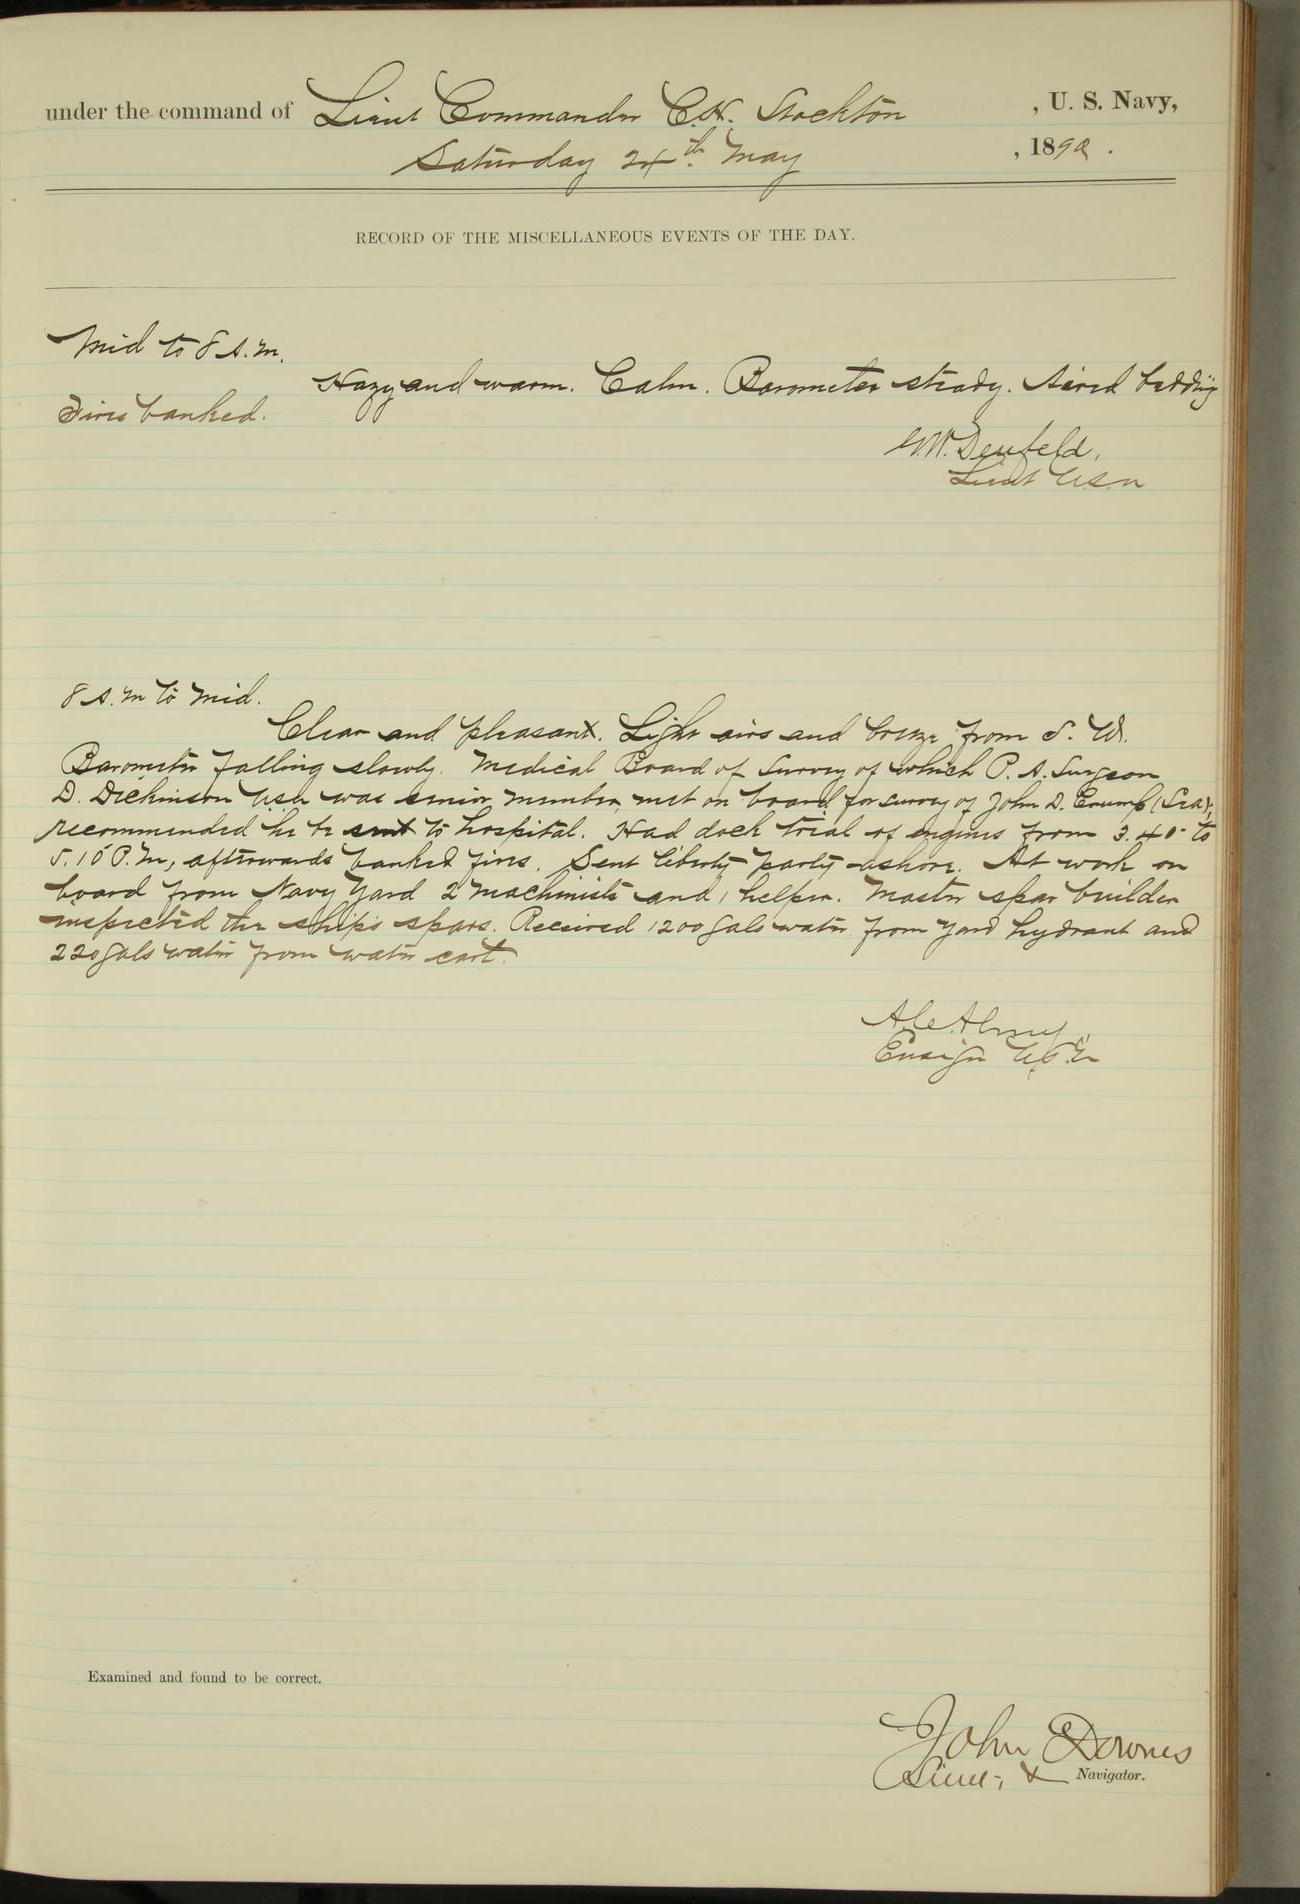 under the command of Lieut Commander C.H. Stockton , U. S. Navy,
Saturday 24th May , 1890 .
RECORD OF THE MISCELLANEOUS EVENTS OF THE DAY.
Mid to 8 A.m.
Hazy and warm. Calm. Barometer steady. Aired bedding
Fires banked.
G.W. Denfeld,
Lieut U.S.N
8 A.m to Mid.
Clear and pleasant. Light airs and breeze from S. W.
Barometer falling slowly. Medical Board of Survey of which P. A. Surgeon
D. Dickinson USN was senior member, met on board for survey of John D. Crump (Sea);
recommended he be sent to hospital. Had dock trial of engines from 3.40 to
5.10 P.m, afterwards banked fires. Sent liberty party ashore. At work on
board from Navy Yard 2 machinists and 1 helper. Master spar builder
inspected the ship's spars. Received 1200 gals water from yard hydrant and
220 gals water from water cart.
A.C. Almy,
Ensign U.S.N
Examined and found to be correct.
John Downes
Lieut, & Navigator.